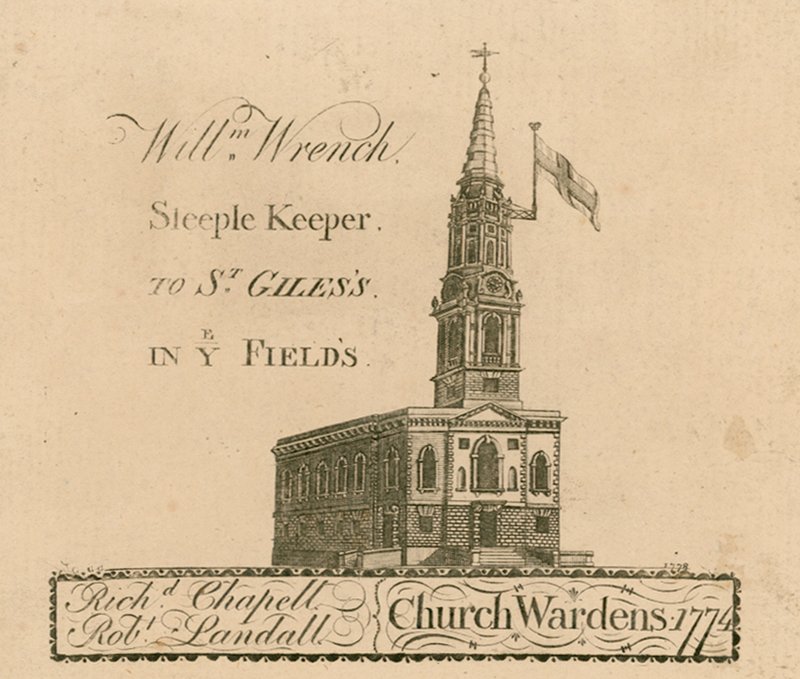 Will.m Wrench.
Steeple Keeper.
TO S.T GILES'S.
IN YE FIELD'S.
1778
Rich.d Chapell.
Rob.t Landall.
Church Wardens. 1774